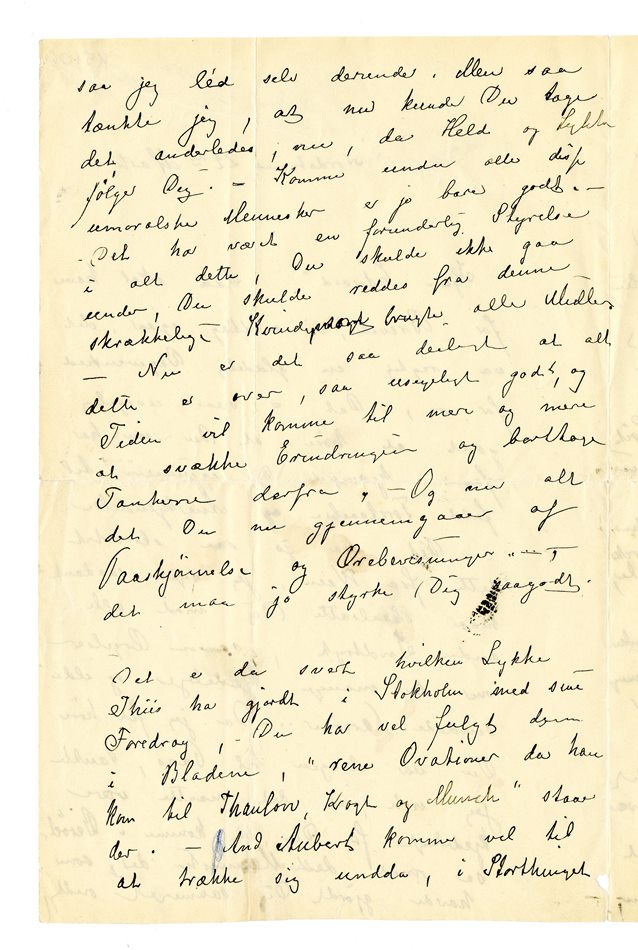 saa jeg léd selv derunder. Men saa
tænkte jeg, at nu kunde Du tage
det anderledes, nu, da Held og Lykke
følger Dig. – Komme under alle disse
umoralske Mennesker er jo bare godt. –
– Det har været en forunderlig Styrelse
i alt dette, Du skulde ikke gaa
under, Du skulde reddes fra denne
skrækkelige brugte alle Midler
– Nu er det saa deiligt at alt
dette er over, saa usigeligt godt, og
Tiden vil komme til mer og mere
at svække Erindringen og borttage
Tankerne derfra „ – Og nu alt
det Du nu gjennemgaaer af
Paaskjønnelse og Æresbevisninger „ – ,
det maa jo styrke Dig saagodt.
Det er da svært hvilken Lykke
Thiis har gjordt i Stokholm med sine
Foredrag, – Du har vel fulgt dem
i Bladene, "rene Ovationer da han
kom til Thaulow, Krogh og Munch" staar
der. – And Aubert kommer vel til
at trække sig undda, i Storthinget